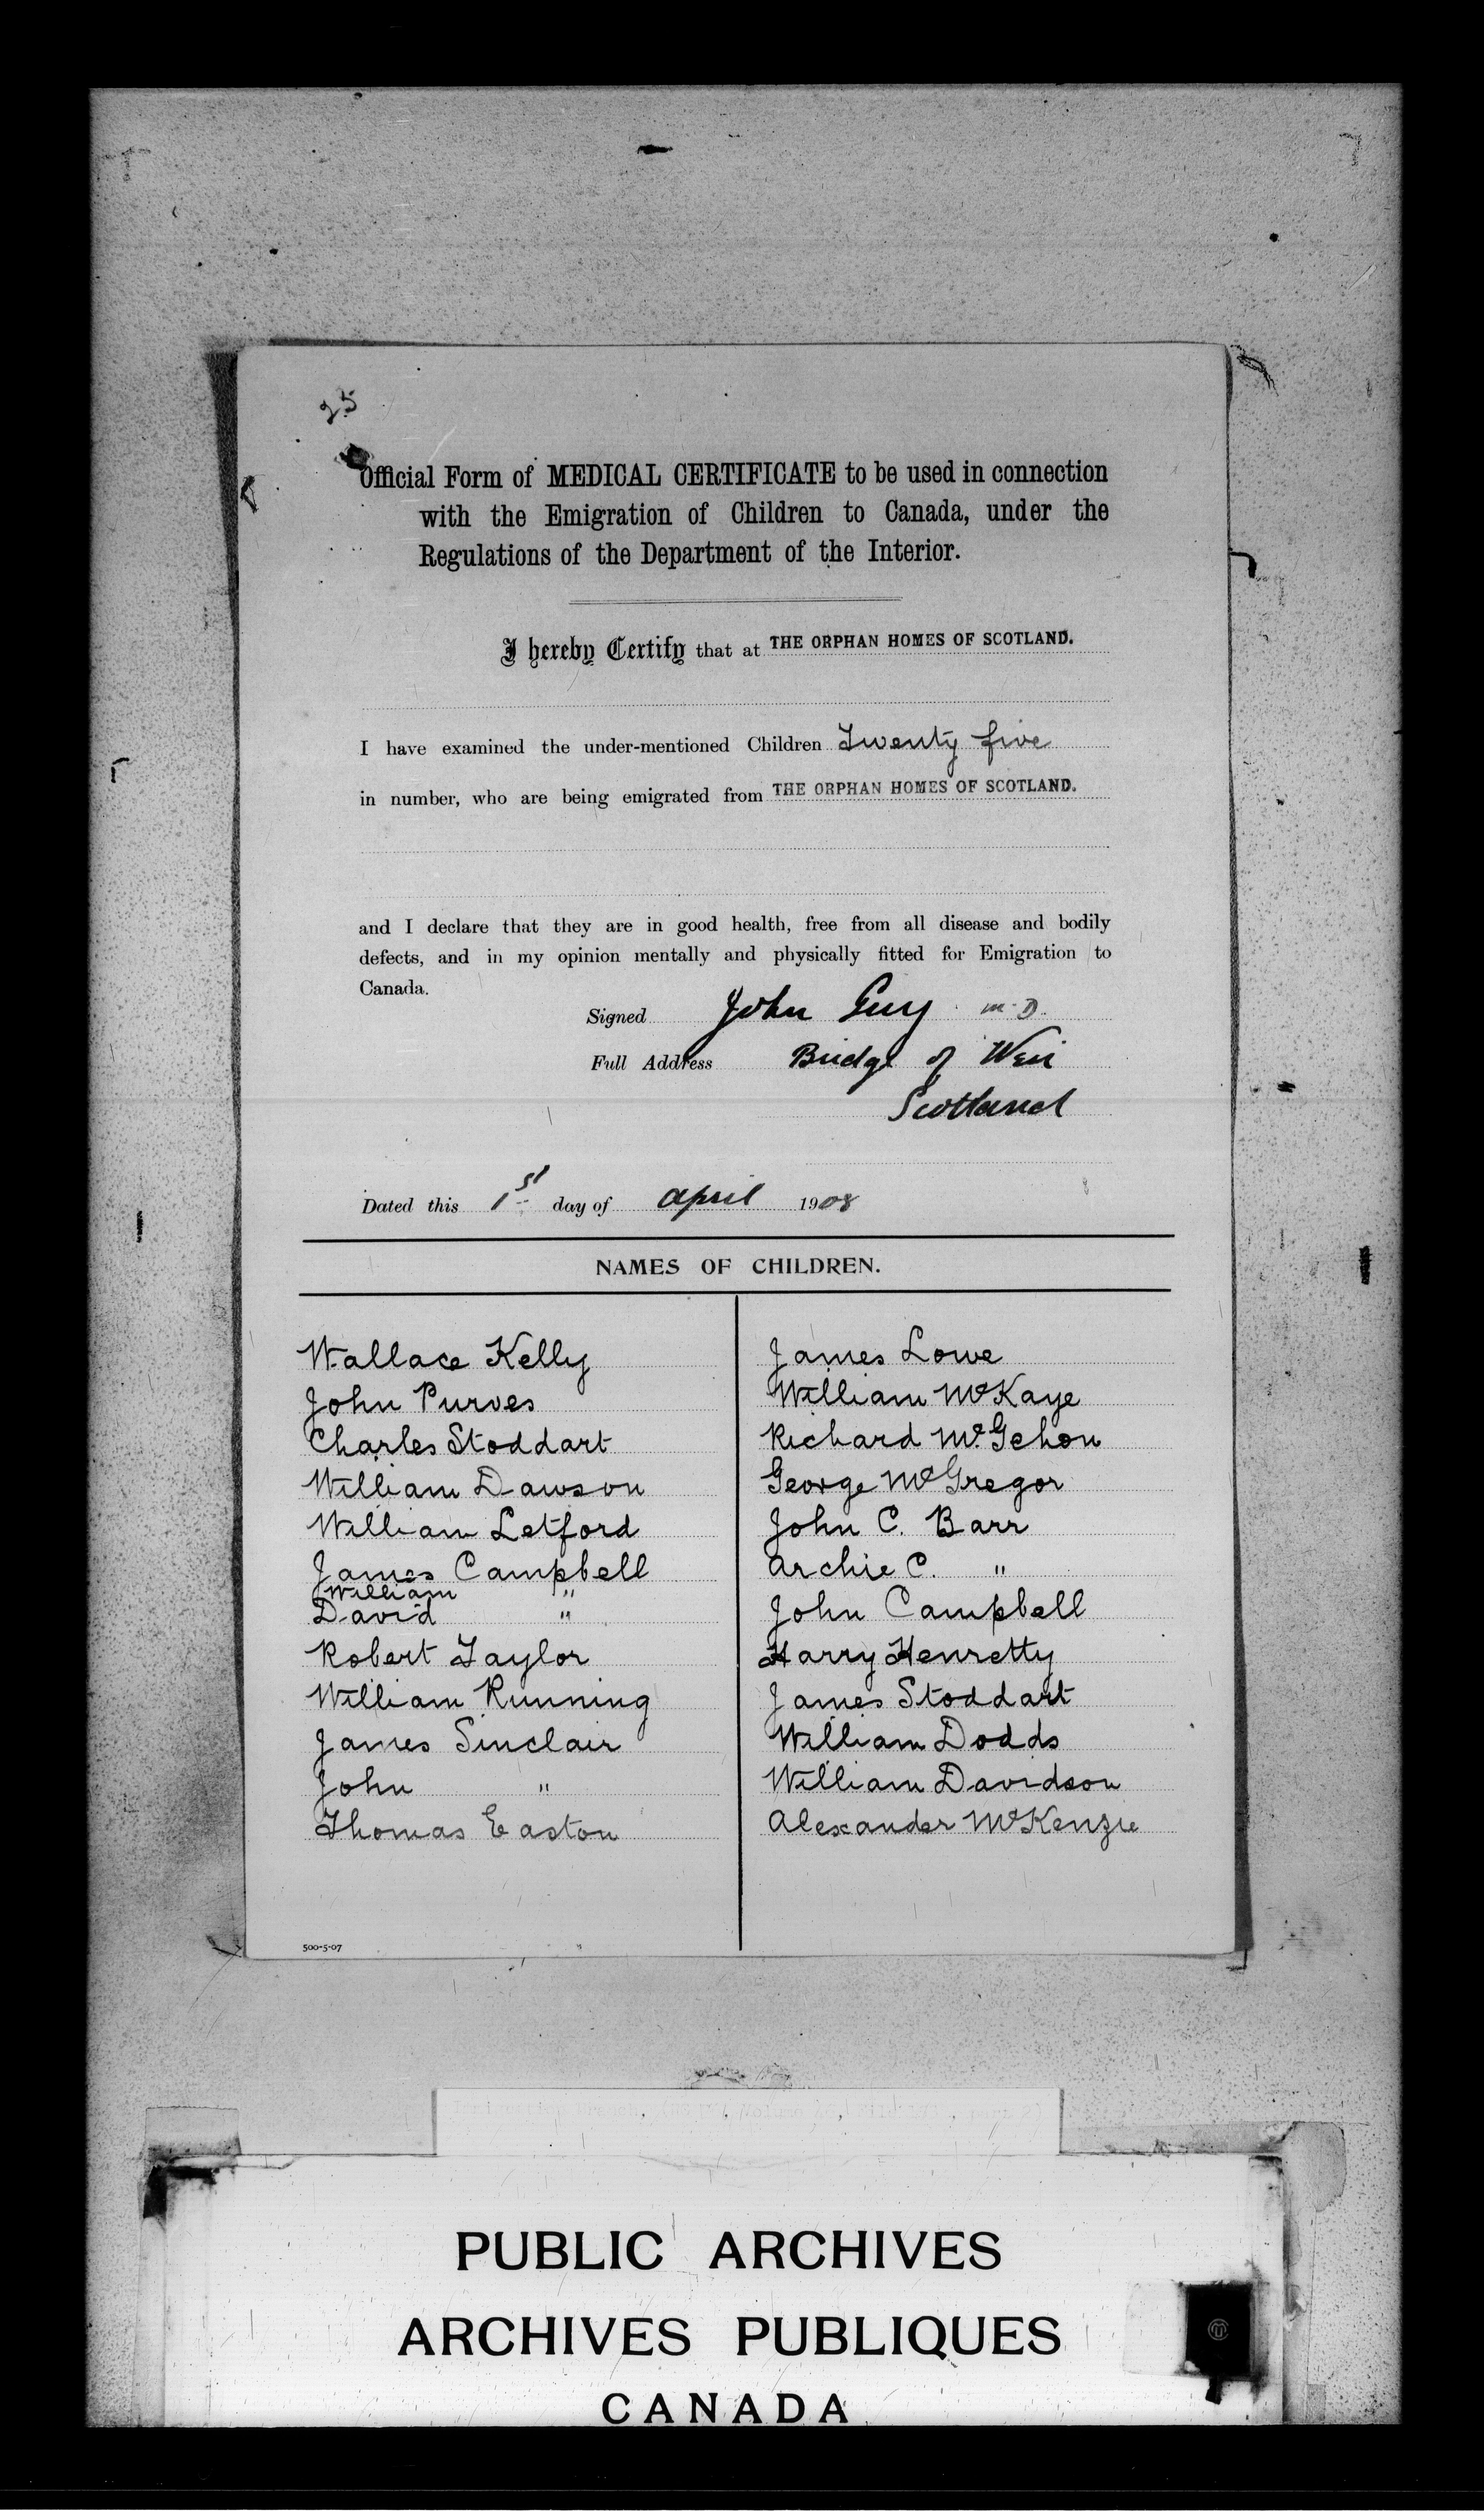 25
Official Form of MEDICAL CERTIFICATE to be used in connection
with the Emigration of Children to Canada, under the
Regulations of the Department of the Interior.
I hereby Certify that at THE ORPHAN HOMES OF SCOTLAND.
I have examined the under-mentioned Children Twenty five
in number, who are being emigrated from THE ORPHAN HOMES OF SCOTLAND.
and I declare that they are in good health, free from all disease and bodily
defects, and in my opinion mentally and physically fitted for Emigration to
Canada.
Signed John Guy M.D.
Full Address Bridge of Weir
Scotland
Dated this 1st day of April 1908
NAMES OF CHILDREN.
Wallace Kelly
John Purves
Charles Stoddart
William Dawson
William Letford
James Campbell
William "
David "
Robert Taylor
William Running
James Sinclair
John "
Thomas Easton
James Lowe
William McKaye
Richard McGehon
George McGregor
John C. Barr
Archie C. "
John Campbell
Harry Henretty
James Stoddart
William Dodds
William Davidson
Alexander McKenzie
500-5-07
PUBLIC ARCHIVES
ARCHIVES PUBLIQUES
CANADA